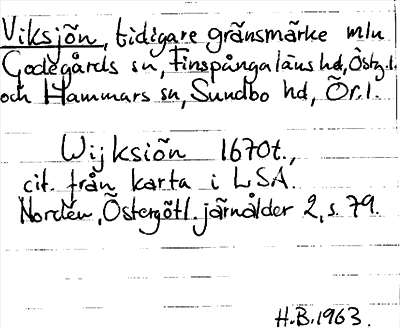 Viksjön, tidigare gränsmärke mln
Godegårds sn, Finspånga läns hd, Östg.l.
och Hammars sn, Sundbo hd, Ör.l.
Wijksiön 1670t.,
cit. från karta i LSA.
Nordén, Östergötl. järnålder 2, s. 79.
H.B. 1963.